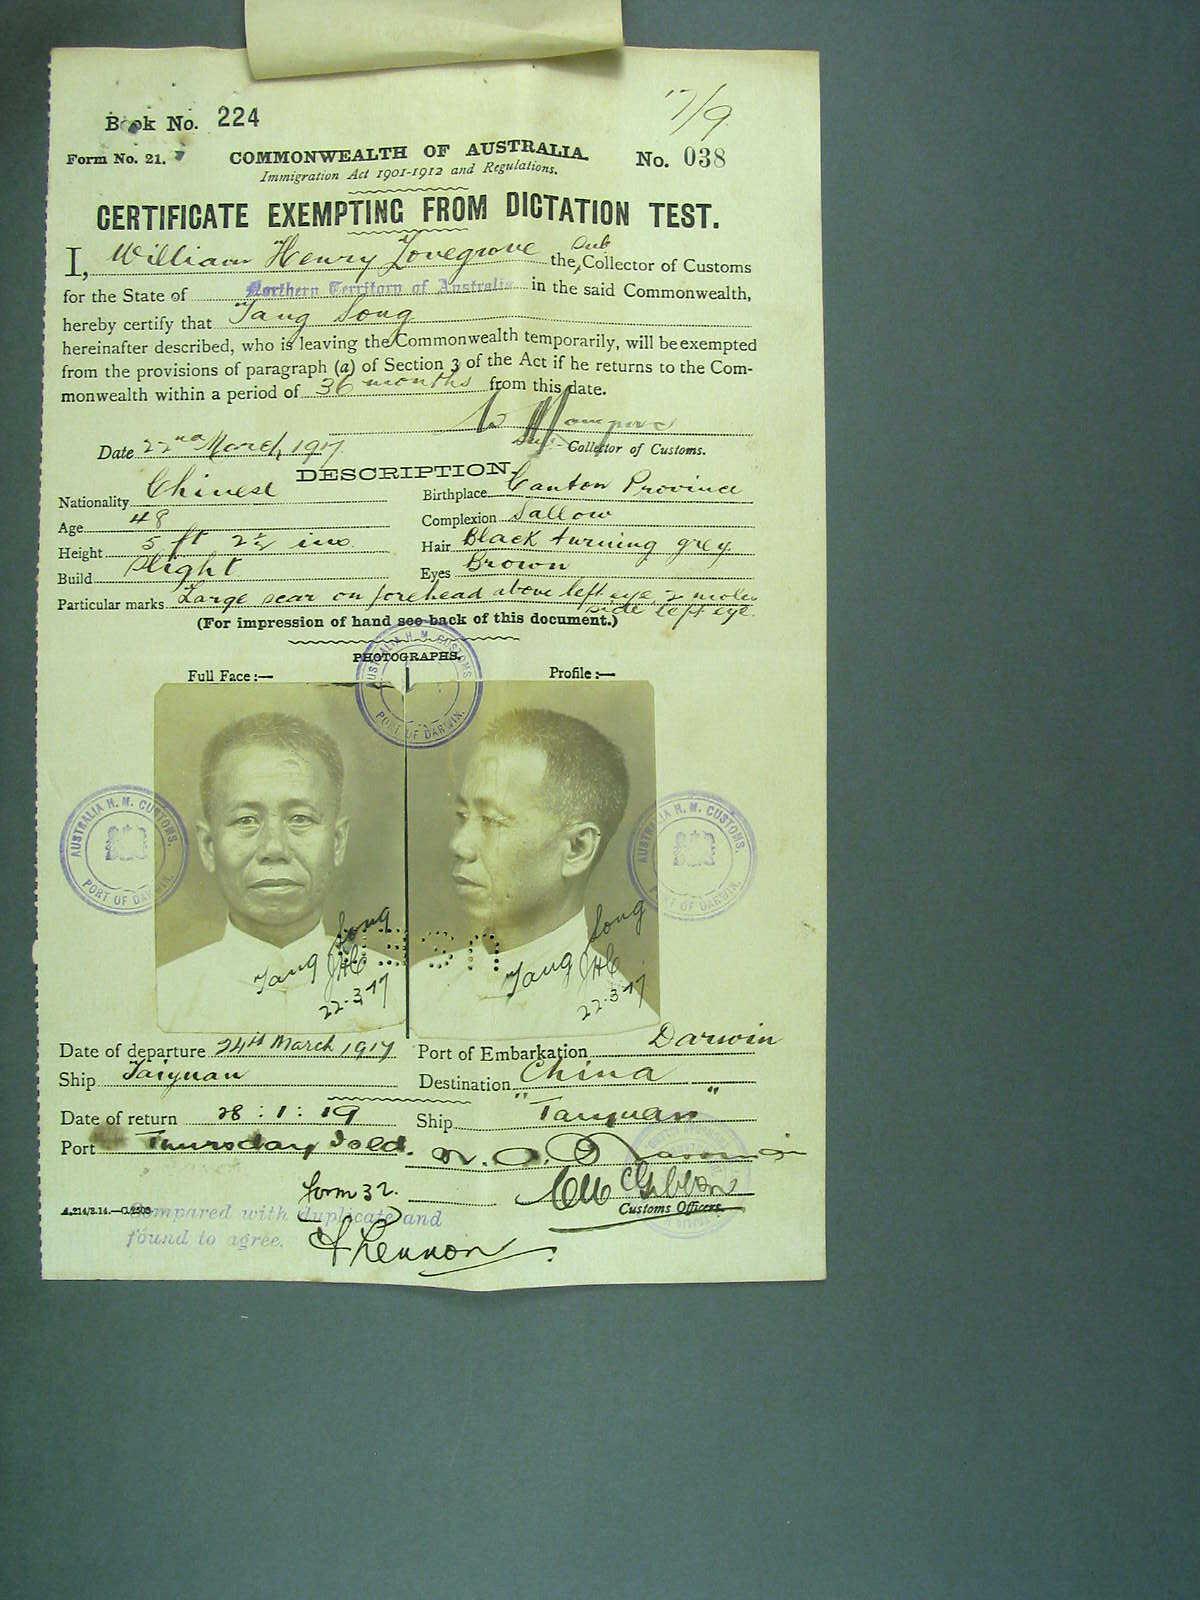 17/9
Book No. 224
Form No. 21.
COMMONWEALTH OF AUSTRALIA.
No. 038
Immigration Act 1901-1912 and Regulations.
CERTIFICATE EXEMPTING FROM DICTATION TEST.
I, William Henry Lovegrove the Sub Collector of Customs
for the State of Northern Territory of Australia in the said Commonwealth,
hereby certify that Tang Song
hereinafter described, who is leaving the Commonwealth temporarily, will be exempted
from the provisions of paragraph (a) of Section 3 of the Act if he returns to the Com-
monwealth within a period of 36 months from this date.
Date 22nd March 1917 Sub Collector of Customs.
DESCRIPTION.
Nationality Chinese Birthplace Canton Province
Age 48 Complexion Sallow
Height 5 ft 2½ ins Hair Black turning grey
Build Slight Eyes Brown
Particular marks Large scar on forehead above left eye, 2 moles
side left eye.
(For impression of hand see back of this document.)
PHOTOGRAPHS.
Full Face:— Profile:—
AUSTRALIA H. M. CUSTOMS.
PORT OF DARWIN.
AUSTRALIA H. M. CUSTOMS.
PORT OF DARWIN.
AUSTRALIA H. M. CUSTOMS.
PORT OF DARWIN.
Tang Song
22-3-17
Tang Song
22-3-17
Date of departure 24th March 1917 Port of Embarkation Darwin
Ship Taiyuan Destination China
Date of return 28:1:19 Ship "Taiyuan"
Port Thursday Isld.
form 32.
Customs Officers.
Compared with duplicate and
found to agree.